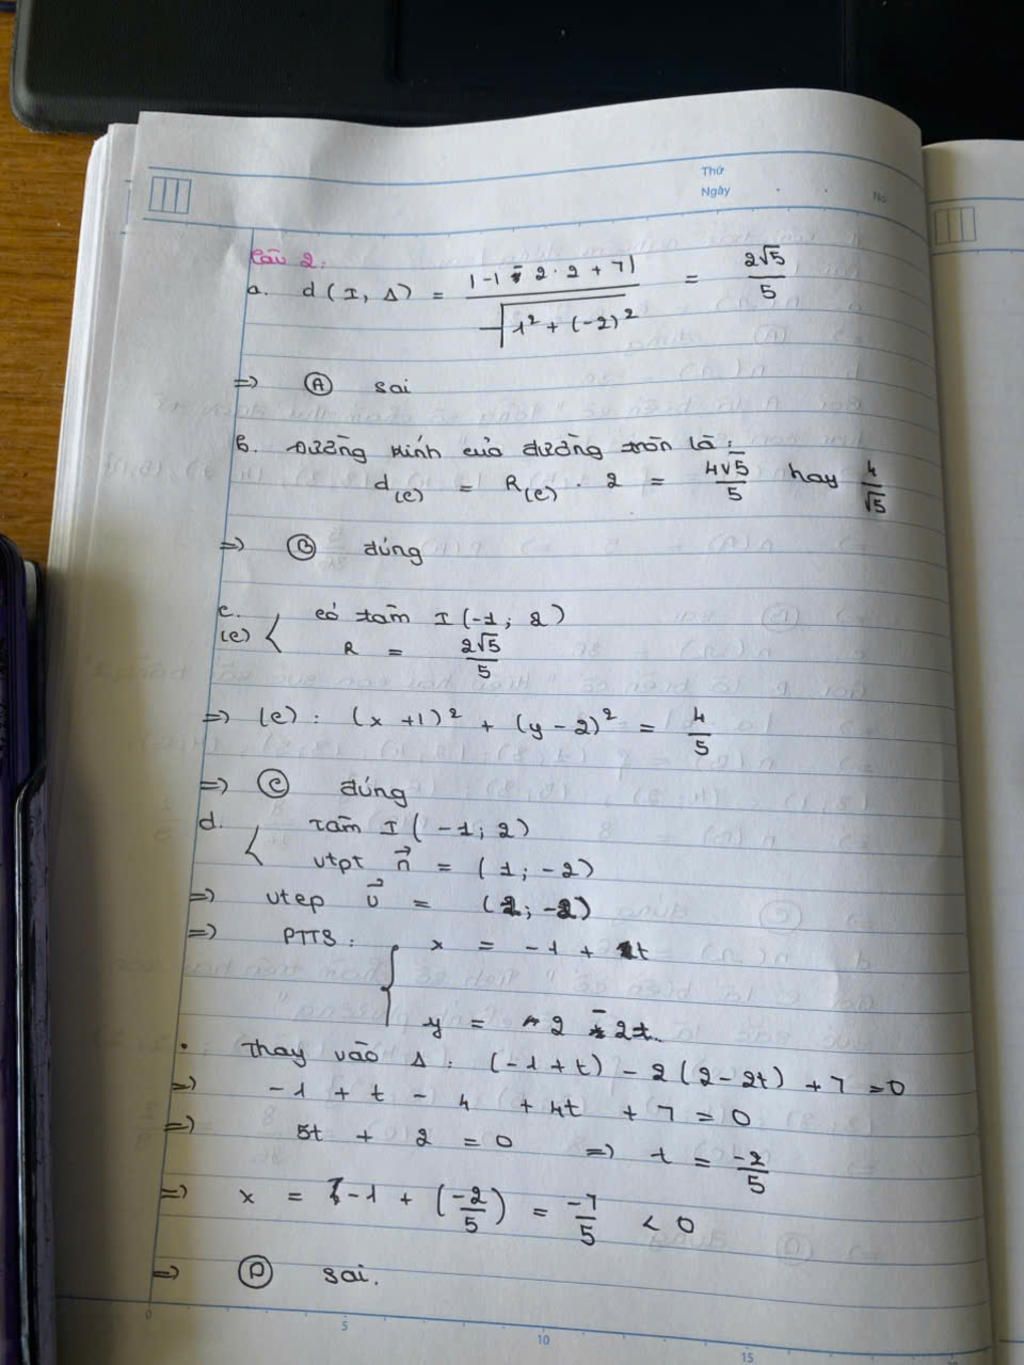 Thứ
Ngày
No
Câu 2:
a. d(I, Δ) = |-1 - 2.2 + 7| / √(1² + (-2)²) = 2√5/5
=> Ⓐ sai
b. Đường kính của đường tròn là:
d(c) = R(c) . 2 = 4√5/5 hay 4/√5
=> Ⓑ đúng
c. (c) { có tâm I(-1; 2)
R = 2√5/5
=> (c): (x+1)² + (y-2)² = 4/5
=> Ⓒ đúng
d. { Tâm I(-1; 2)
vtpt n⃗ = (1; -2)
=> vtcp u⃗ = (1; -2)
=> PTTS: { x = -1 + 1t
y = 2 - 2t
• Thay vào Δ: (-1+t) - 2(2-2t) + 7 = 0
=> -1 + t - 4 + 4t + 7 = 0
=> 5t + 2 = 0 => t = -2/5
=> x = -1 + (-2/5) = -7/5 < 0
=> Ⓓ sai.
0 5 10 15